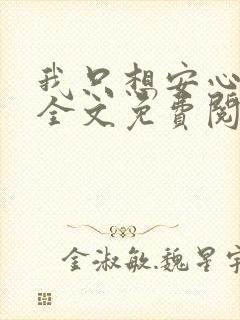 我只想安心
全文免費閱
金淑敏,魏星宇